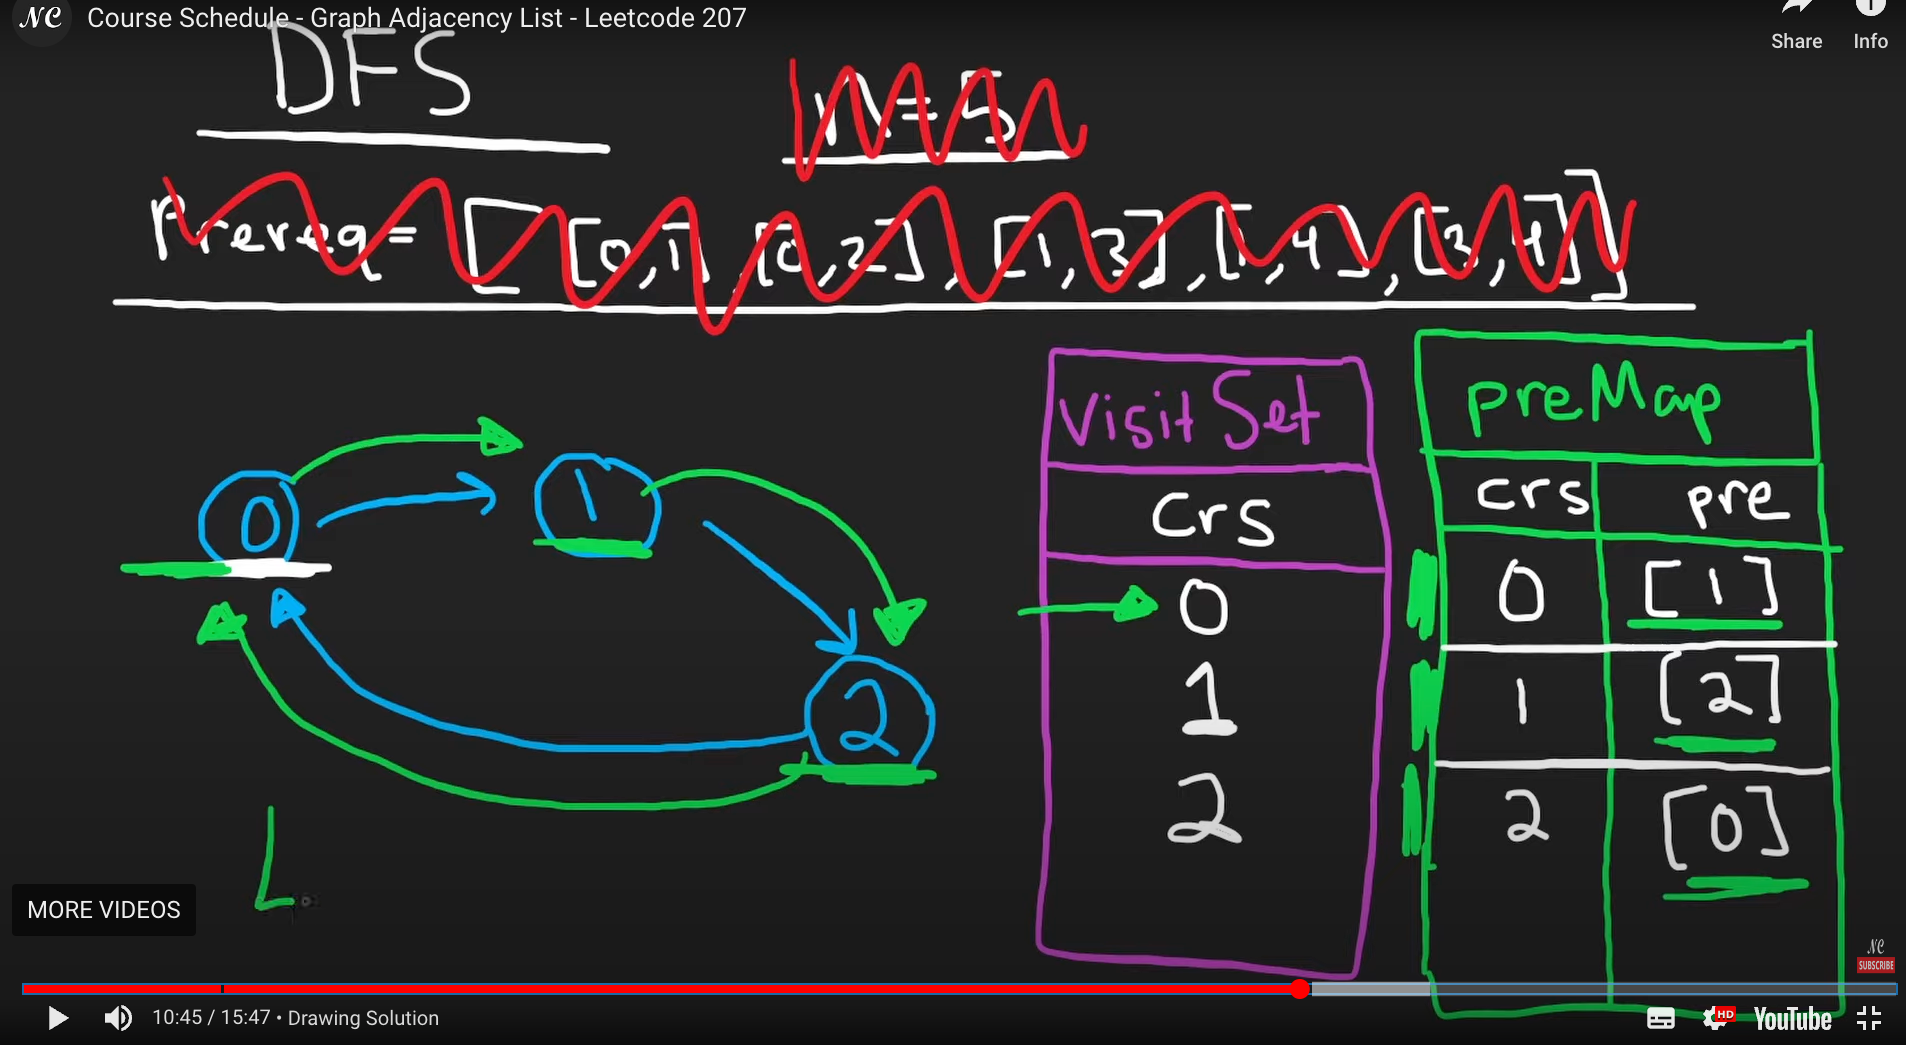 NC Course Schedule - Graph Adjacency List - Leetcode 207
Share Info
DFS
n = 5
Prereq = [[0,1], [0,2], [1,3], [1,4], [3,4]]
Visit Set
preMap
crs
crs pre
0
1
2
0 [1]
1 [2]
2 [0]
0
1
2
L
MORE VIDEOS
NC
SUBSCRIBE
10:45 / 15:47 • Drawing Solution
HD
YouTube